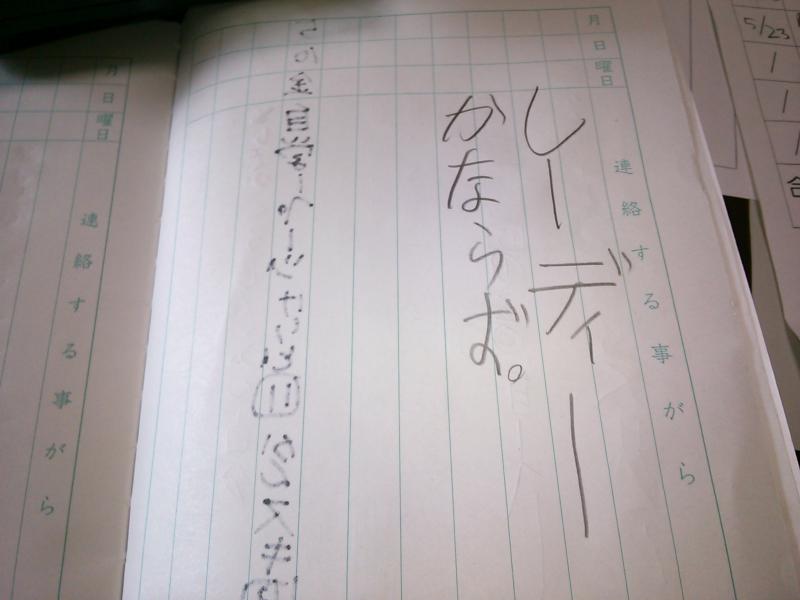 5/23
1
1
1
合
月
日
曜日
連絡する事がら
しーディー
かならず。
月
日
曜日
連絡する事がら